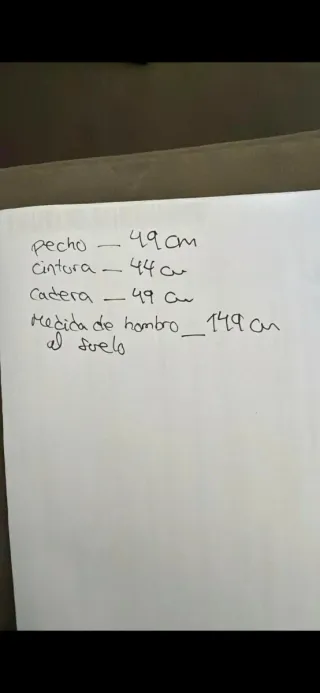 pecho — 49 cm
cintura — 44 cm
cadera — 49 cm
Medida de hombro — 149 cm
al suelo